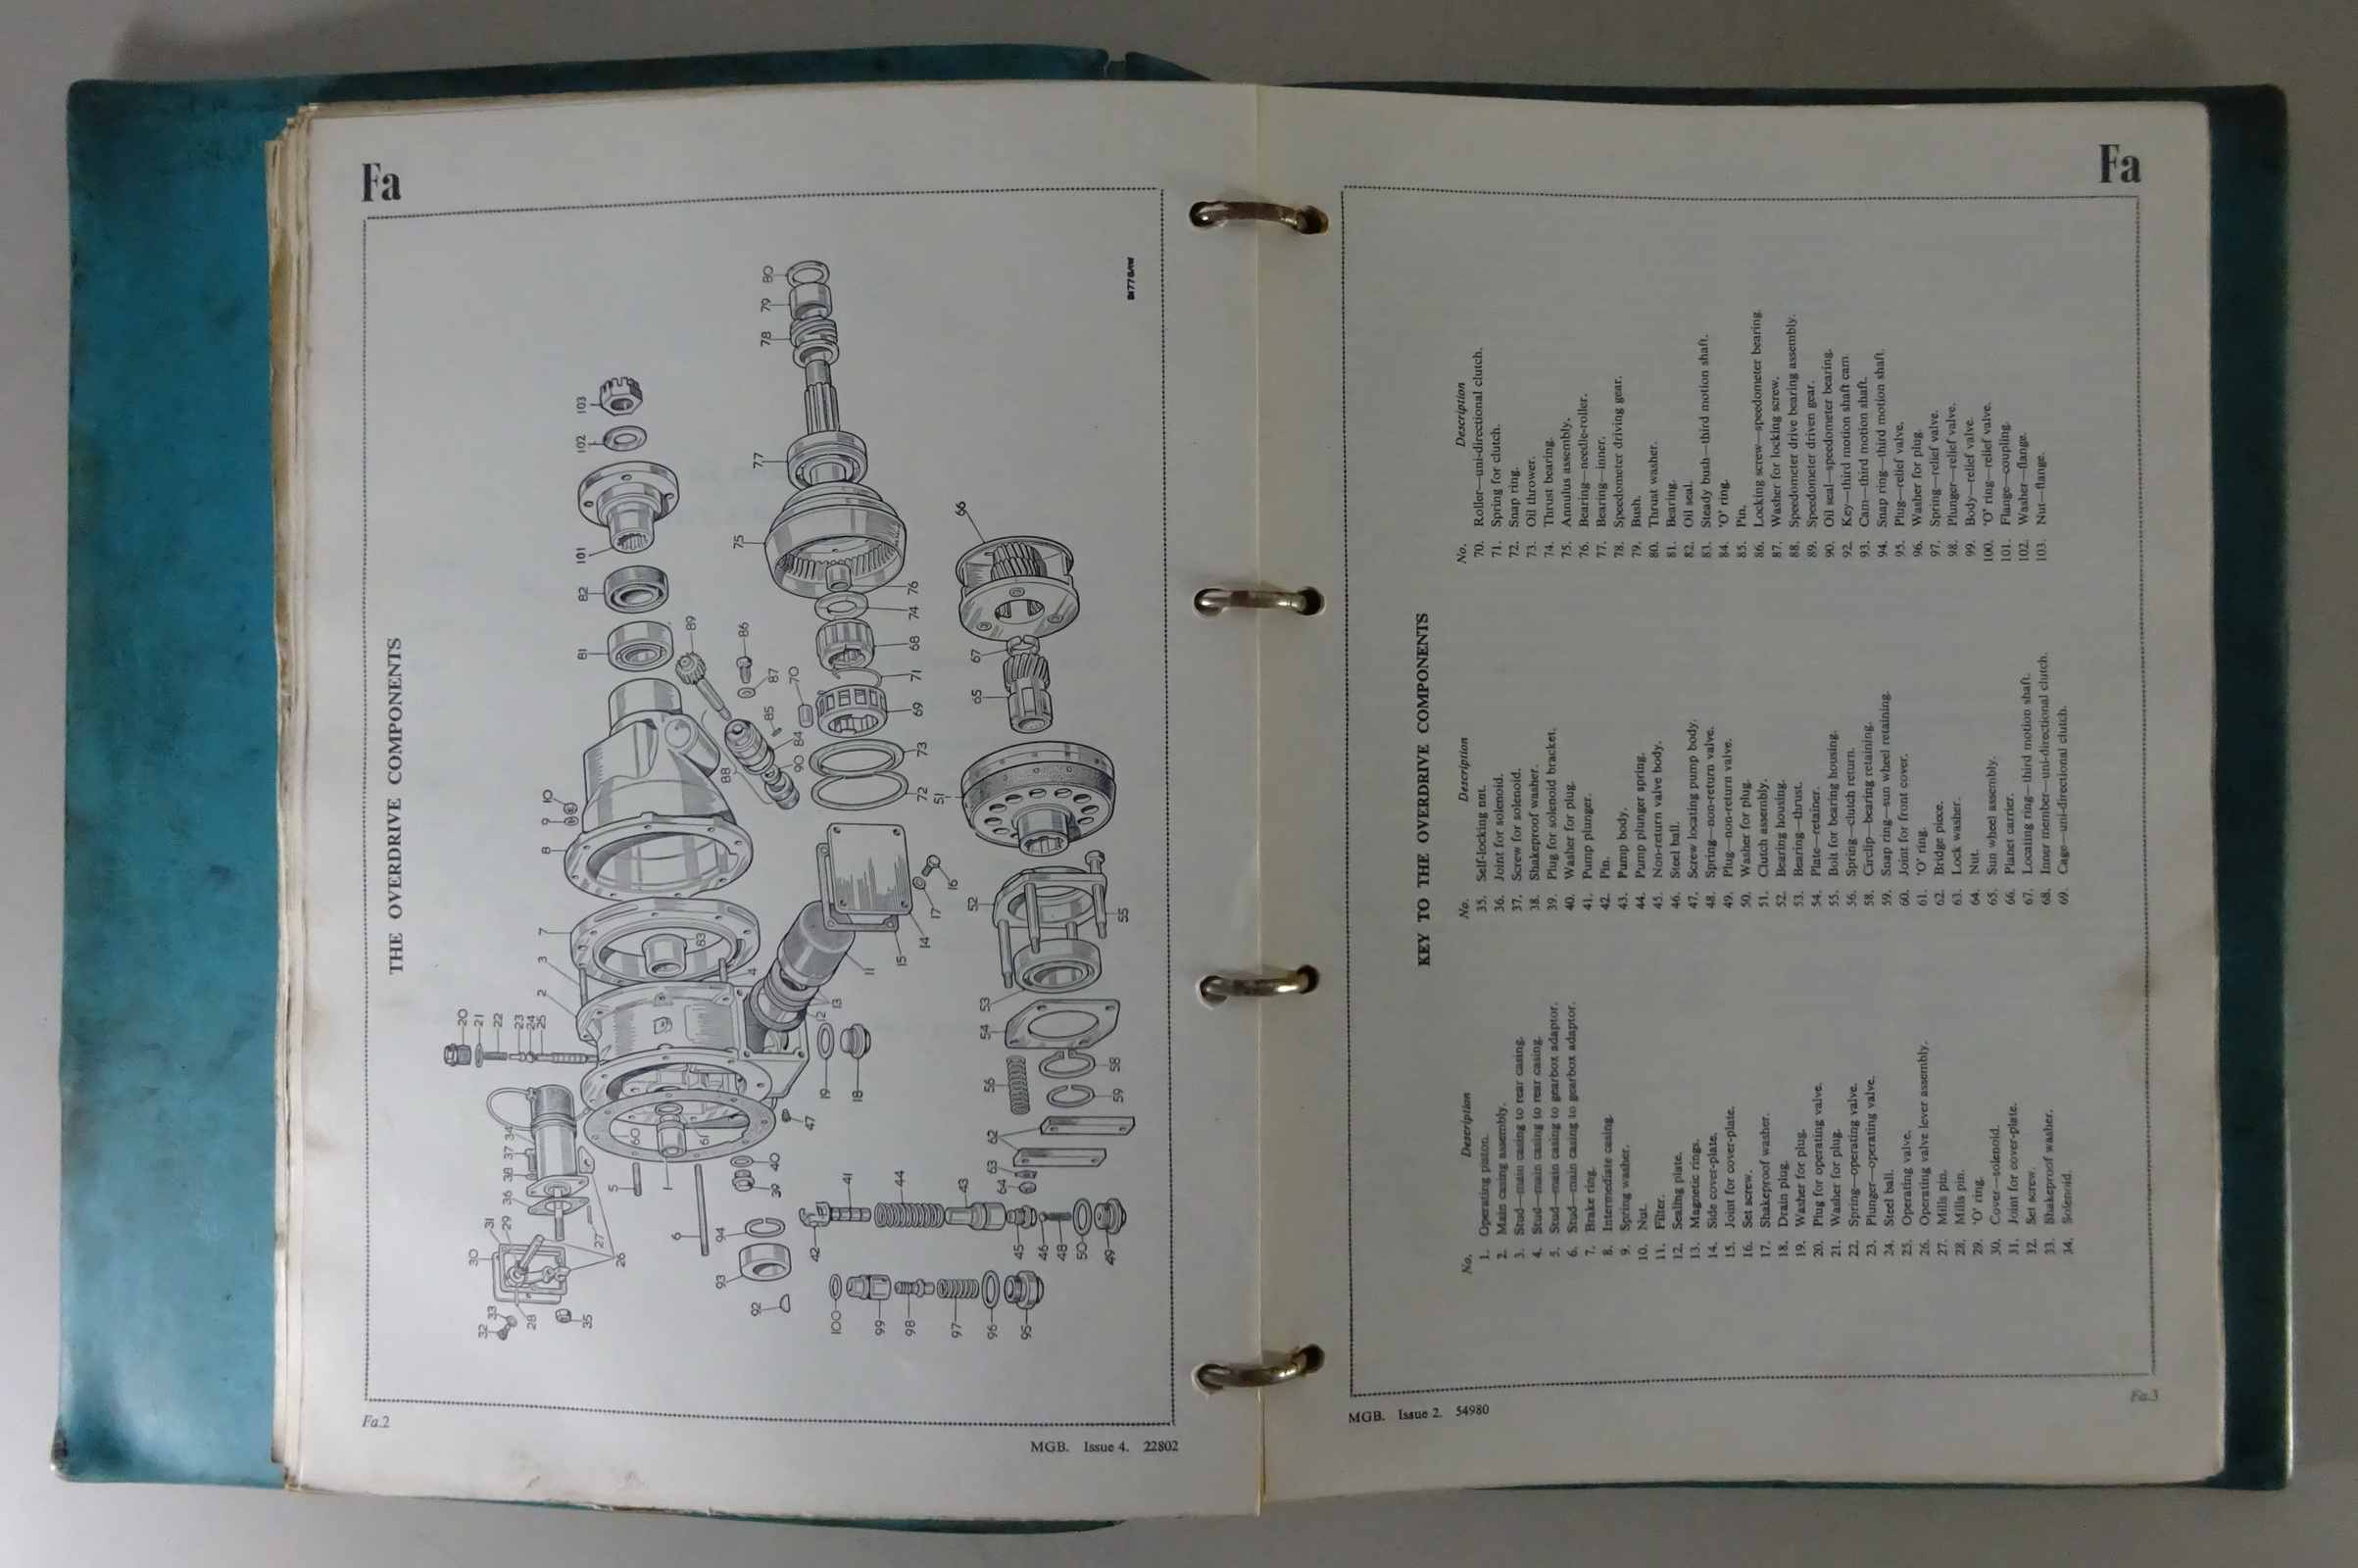 Fa
THE OVERDRIVE COMPONENTS
80
79
78
103
102
77
101
75
66
82
81
89
86
87
70
76
74
68
67
71
65
69
85
84
90
88
73
72
51
10
9
8
16
17
52
55
7
83
3
4
14
15
11
2
13
12
53
54
20
21
22
23
24
25
19
18
56
58
59
47
60
61
62
63
64
34
37
38
36
5
1
40
39
41
44
43
42
45
46
48
50
49
31
29
30
27
26
6
94
93
92
33
32
28
35
100
99
98
97
96
95
B1778AW
Fa.2
MGB. Issue 4. 22802
Fa
KEY TO THE OVERDRIVE COMPONENTS
No. Description
1. Operating piston.
2. Main casing assembly.
3. Stud—main casing to rear casing.
4. Stud—main casing to rear casing.
5. Stud—main casing to gearbox adaptor.
6. Stud—main casing to gearbox adaptor.
7. Brake ring.
8. Intermediate casing.
9. Spring washer.
10. Nut.
11. Filter.
12. Sealing plate.
13. Magnetic rings.
14. Side cover-plate.
15. Joint for cover-plate.
16. Set screw.
17. Shakeproof washer.
18. Drain plug.
19. Washer for plug.
20. Plug for operating valve.
21. Washer for plug.
22. Spring—operating valve.
23. Plunger—operating valve.
24. Steel ball.
25. Operating valve.
26. Operating valve lever assembly.
27. Mills pin.
28. Mills pin.
29. 'O' ring.
30. Cover—solenoid.
31. Joint for cover-plate.
32. Set screw.
33. Shakeproof washer.
34. Solenoid.
No. Description
35. Self-locking nut.
36. Joint for solenoid.
37. Screw for solenoid.
38. Shakeproof washer.
39. Plug for solenoid bracket.
40. Washer for plug.
41. Pump plunger.
42. Pin.
43. Pump body.
44. Pump plunger spring.
45. Non-return valve body.
46. Steel ball.
47. Screw locating pump body.
48. Spring—non-return valve.
49. Plug—non-return valve.
50. Washer for plug.
51. Clutch assembly.
52. Bearing housing.
53. Bearing—thrust.
54. Plate—retainer.
55. Bolt for bearing housing.
56. Spring—clutch return.
58. Circlip—bearing retaining.
59. Snap ring—sun wheel retaining.
60. Joint for front cover.
61. 'O' ring.
62. Bridge piece.
63. Lock washer.
64. Nut.
65. Sun wheel assembly.
66. Planet carrier.
67. Locating ring—third motion shaft.
68. Inner member—uni-directional clutch.
69. Cage—uni-directional clutch.
No. Description
70. Roller—uni-directional clutch.
71. Spring for clutch.
72. Snap ring.
73. Oil thrower.
74. Thrust bearing.
75. Annulus assembly.
76. Bearing—needle-roller.
77. Bearing—inner.
78. Speedometer driving gear.
79. Bush.
80. Thrust washer.
81. Bearing.
82. Oil seal.
83. Steady bush—third motion shaft.
84. 'O' ring.
85. Pin.
86. Locking screw—speedometer bearing.
87. Washer for locking screw.
88. Speedometer drive bearing assembly.
89. Speedometer driven gear.
90. Oil seal—speedometer bearing.
92. Key—third motion shaft cam
93. Cam—third motion shaft.
94. Snap ring—third motion shaft.
95. Plug—relief valve.
96. Washer for plug.
97. Spring—relief valve.
98. Plunger—relief valve.
99. Body—relief valve.
100. 'O' ring—relief valve.
101. Flange—coupling.
102. Washer—flange.
103. Nut—flange.
MGB. Issue 2. 54980
Fa.3